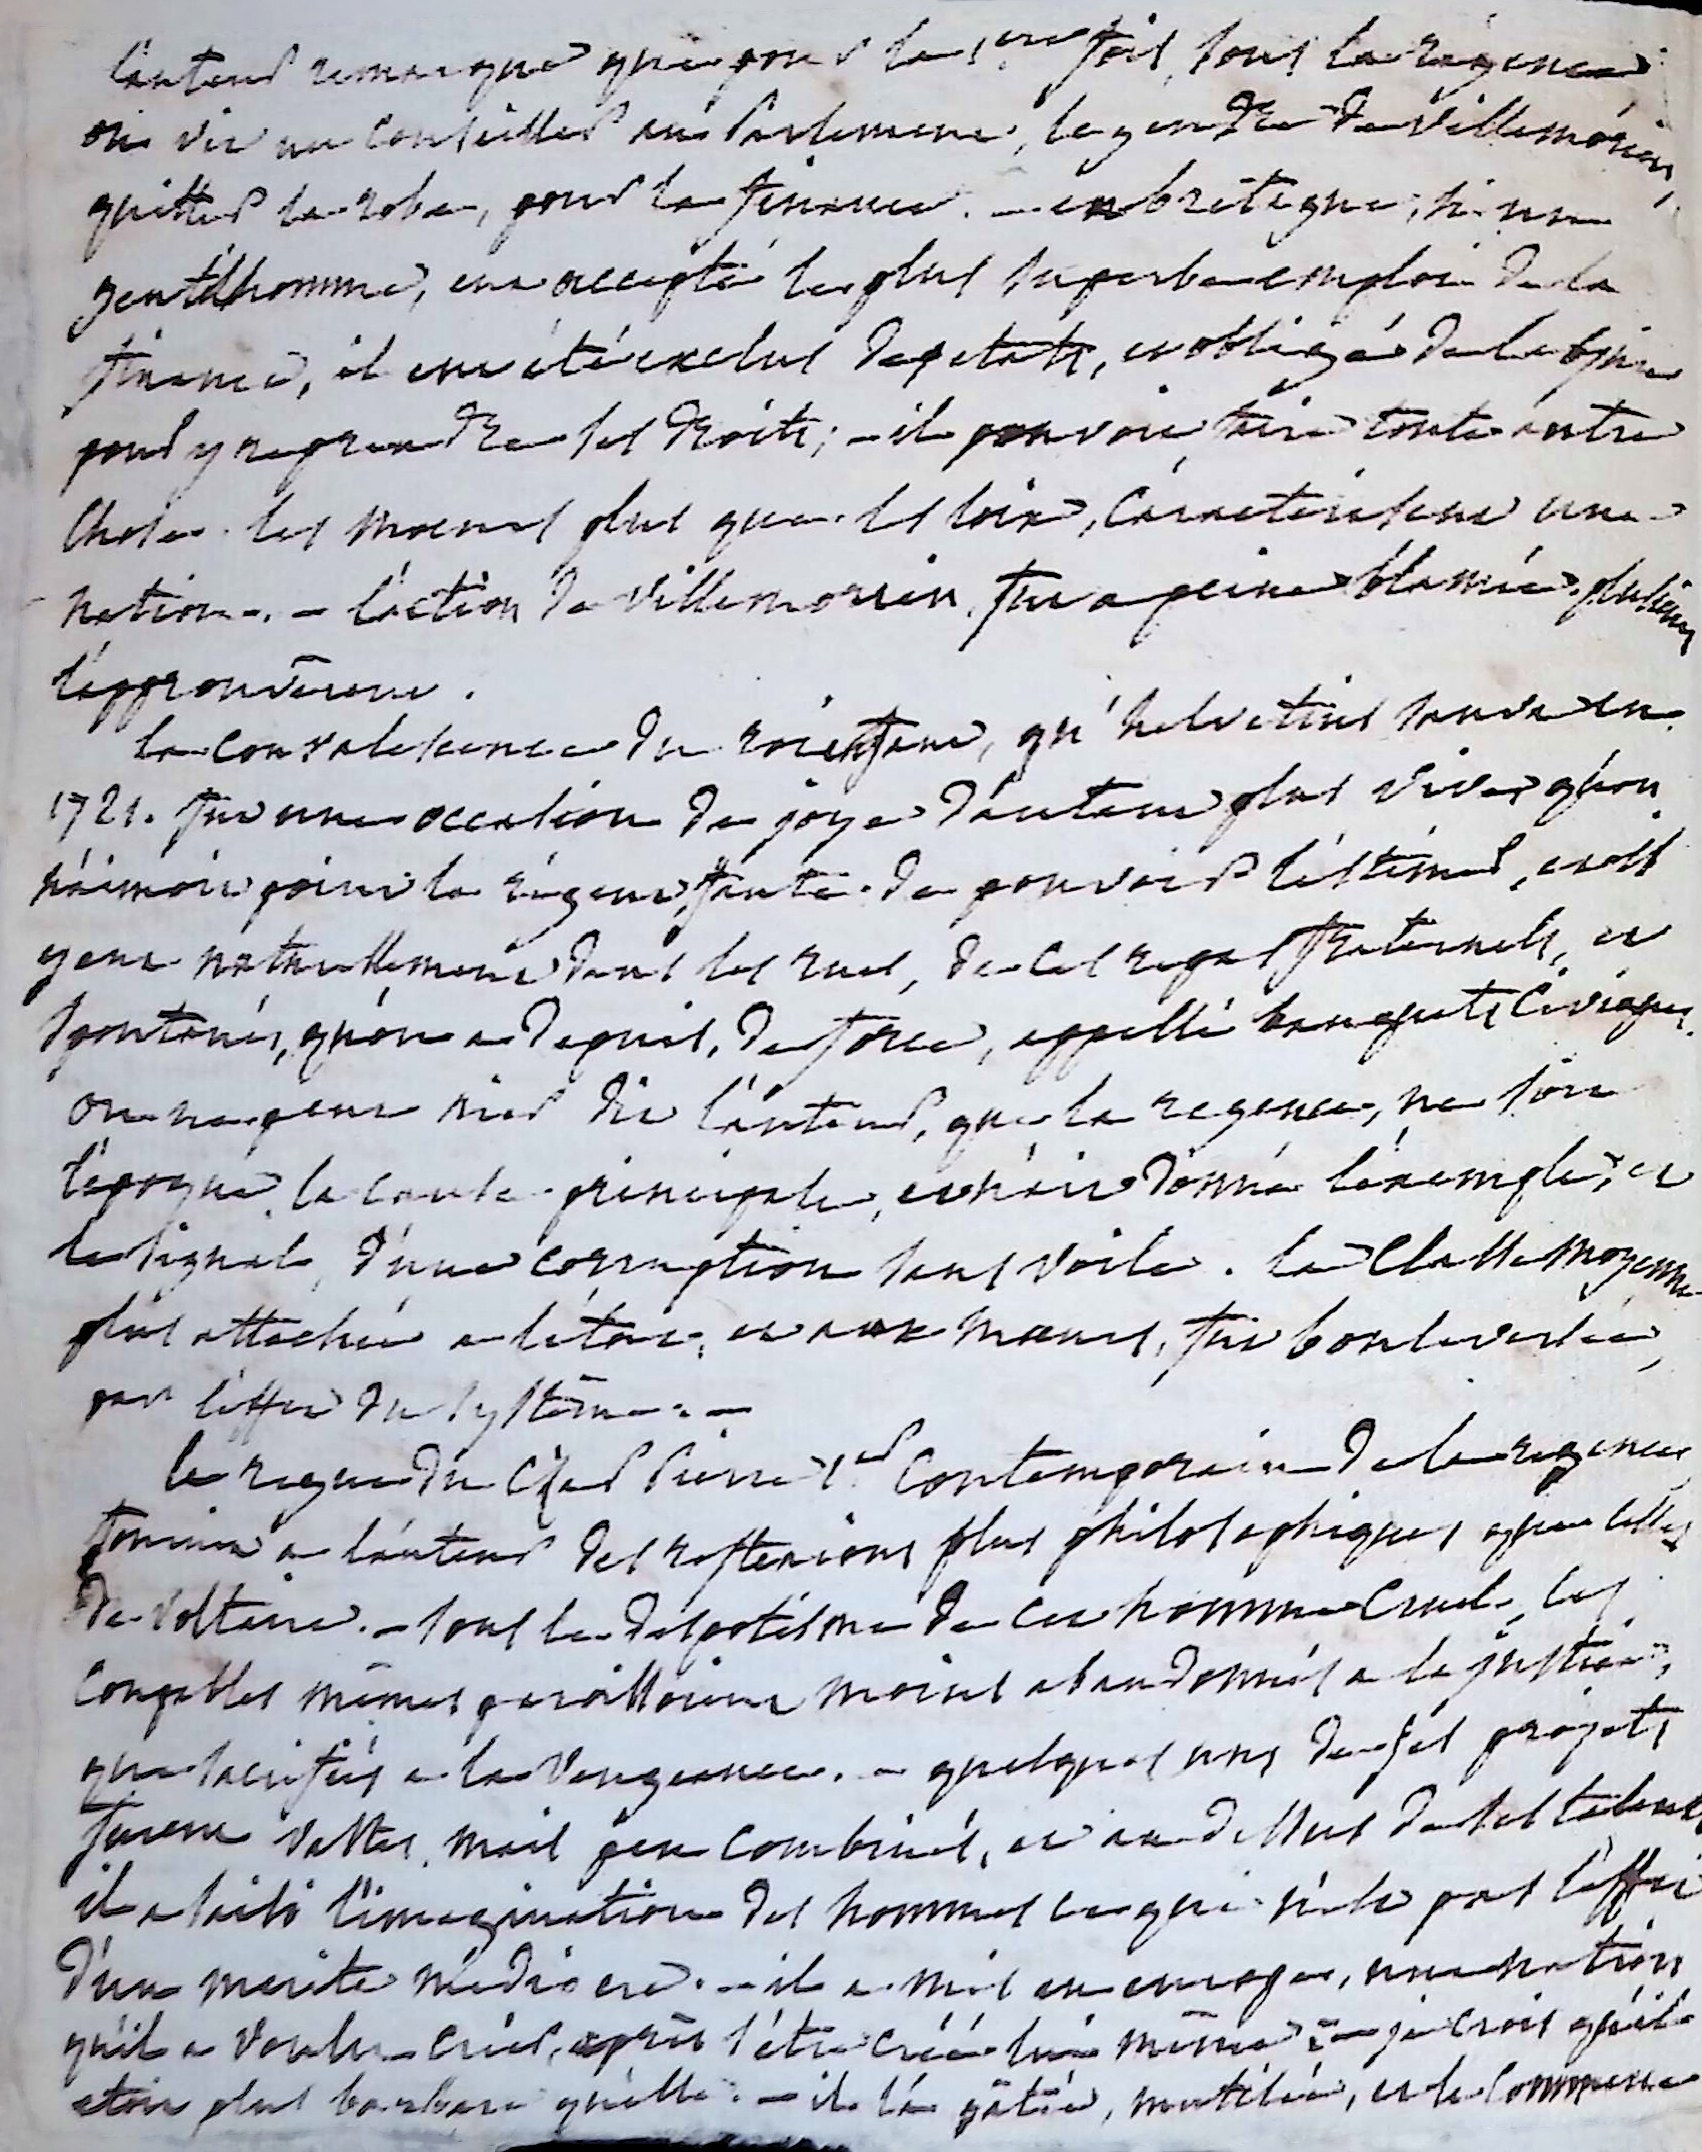 l'auteur remarque que pour la 1.ere fois, sous la régence
on vit un conseiller au Parlement, le gendre de Villemorien,
quitter la robe, pour la finance. – en bretagne, si un
gentilhomme, eut accepté le plus superbe emploi de la
finance, il eut été exclus des etats, et obligé de
pour y reprendre ses droits; – il pouvoit faire toute autre
chose. les moeurs plus que les loix, caractérisent une
nation. – l'action de Villemorien, fut a peine blamée. plusieurs
l'approuvèrent.
la convalescence du roi enfant, qu'helvetius sauva en
1721. fut une occasion de joye d'autant plus vive, qu'on
n'aimoit point le régent, faute de pouvoir l'estimer, et
naturellement dans les rues, de ces repas fraternels, et
spontanés, qu'on a depuis, de force, appellé banquets civiques.
on ne peut nier dit l'auteur, que la regence, ne soit
l'époque, la cause principale, et n'ait donné l'exemple, et
le signal, d'une corruption sans voile. la classe moyenne
plus attachée a l'état, et aux moeurs, fut bouleversée,
par l'effet du système. –
le regne du Czar Pierre 1.er contemporain de la regence
fournit a l'auteur des reflexions plus philosophiques que celles
de Voltaire. – sous le despotisme de cet homme cruel, les
coupables mêmes paroissoient moins abandonnés a la justice,
que sacrifiés a la vengeance. – quelques uns de ses projets
furent vastes, mais peu combinés, et au dessus de ses talents
il a saisi l'imagination des hommes ce qui n'est pas l'effet
d'un merite médiocre. – il a mis en europe, une nation
qu'il a voulu créer, après s'être créé lui même – je crois qu'il
etoit plus barbare qu'elle. – il l'a gâtée, mutilée, et le commence